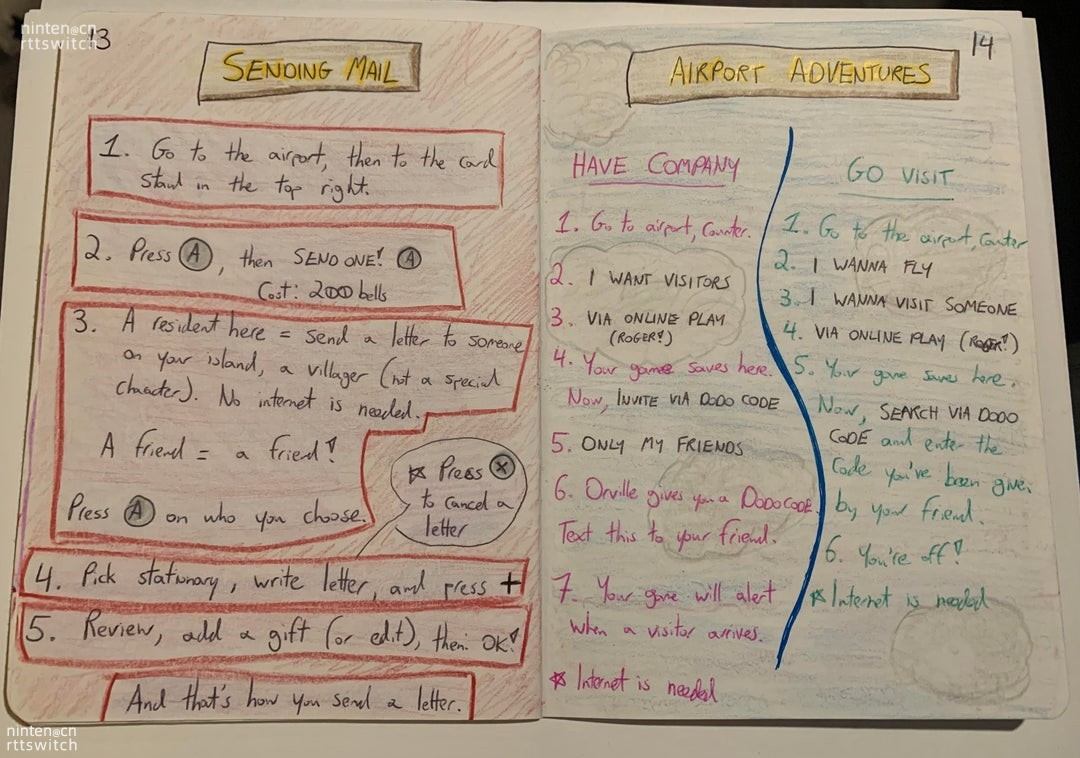 ninten@cn
rttswitch
13
SENDING MAIL
1. Go to the airport, then to the card
stand in the top right.
2. Press A, then SEND ONE! A
Cost: 200 bells
3. A resident here = send a letter to someone
on your island, a villager (not a special
character). No internet is needed.
A friend = a friend!
Press A on who you choose.
☆ Press X
to cancel a
letter
4. Pick stationary, write letter, and press +
5. Review, add a gift (or edit), then: OK!
And that's how you send a letter.
14
AIRPORT ADVENTURES
HAVE COMPANY
1. Go to airport, counter.
2. I WANT VISITORS
3. VIA ONLINE PLAY
(ROGER!)
4. Your game saves here.
Now, INVITE VIA DODO CODE
5. ONLY MY FRIENDS
6. Orville gives you a DODO CODE.
Text this to your friend.
7. Your game will alert
when a visitor arrives.
☆ Internet is needed
GO VISIT
1. Go to the airport, counter
2. I WANNA FLY
3. I WANNA VISIT SOMEONE
4. VIA ONLINE PLAY (ROGER!)
5. Your game saves here.
Now, SEARCH VIA DODO
CODE and enter the
code you've been given
by your friend.
6. You're off!
☆ Internet is needed
ninten@cn
rttswitch